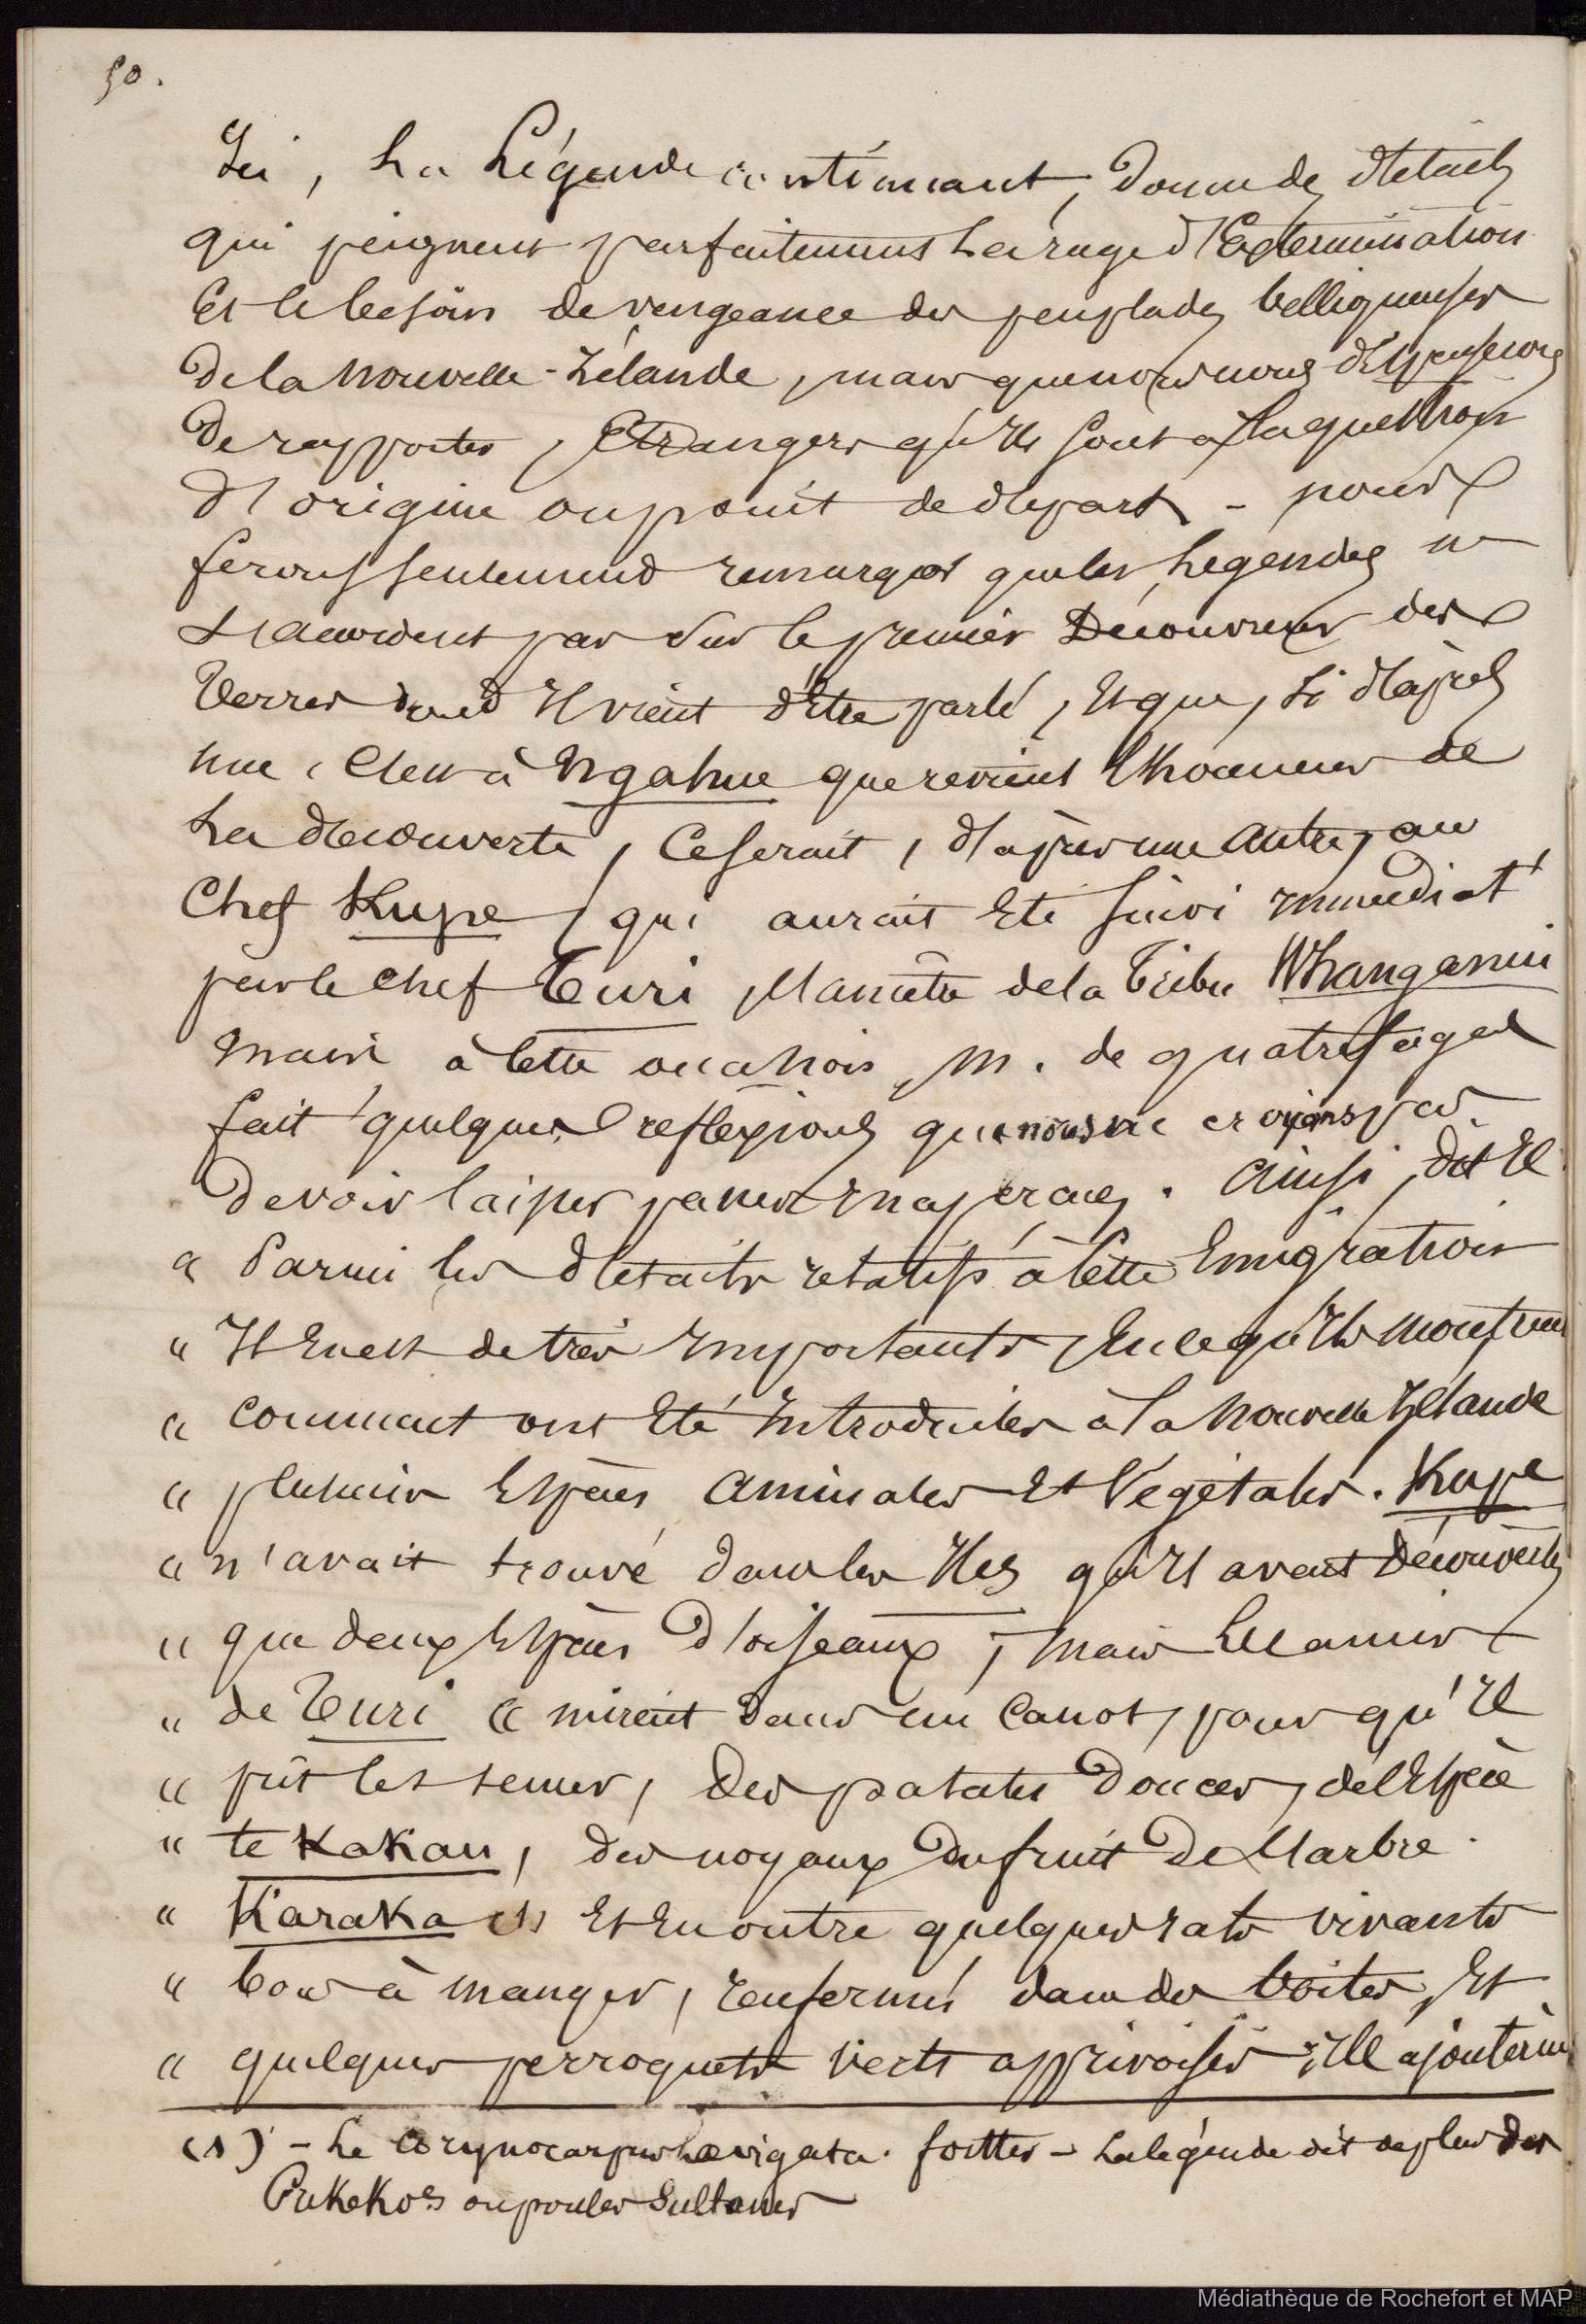 50.
Ici, la Légende continuant, donne des détails
qui peignent parfaitement la rage d'Extermination
Et le besoin de vengeance des peuplades belliqueuses
de la Nouvelle-Zélande, mais que nous nous dispensons
de rapporter, Etrangers qu'ils sont à la question
d'origine ou point de départ - nous
ferons seulement remarquer que les Légendes ne
s'accordent pas sur le premier Découvreur des
Terres dont Il vient d'être parlé, Et que, si d'après
une, C'est à Ngahue que revient l'honneur de
la découverte, Ce serait, d'après une autre, au
Chef Kupe, qui aurait Eté suivi Immediat'
par le chef Turi, l'ancêtre de la Tribu Whanganui
Mais à cette occasion, M. de quatrefages
fait quelques reflexions que nous ne croyons pas
devoir laisser passer Inaperçues. Ainsi, dit Il
" Parmi les détails relatifs à cette Emigration
" Il En est de très Importants, En ce qu'Ils montrent
" comment ont Eté Introduites à la Nouvelle Zélande
" plusieurs Espèces Animales Et Végétales. Kupe
" n'avait trouvé dans les Iles qu'Il avait Découvertes
" que deux Espèces d'oiseaux; Mais les amis
" de Turi mirent dans un Canot, pour qu'Il
" pût les semer, des patates douces, de l'Espèce
" te Kakau, des noyaux du fruit de l'arbre
" Karaka (1) Et En outre quelques rats vivants
" bons à manger, renfermés dans des boites, Et
" quelques perroquets verts apprivoisés; Ils ajoutèrent
(1) - Le Corynocarpus Lævigata. forster - La légende dit de plus des
Pukekos ou poules Sultanes
Médiathèque de Rochefort et MAP